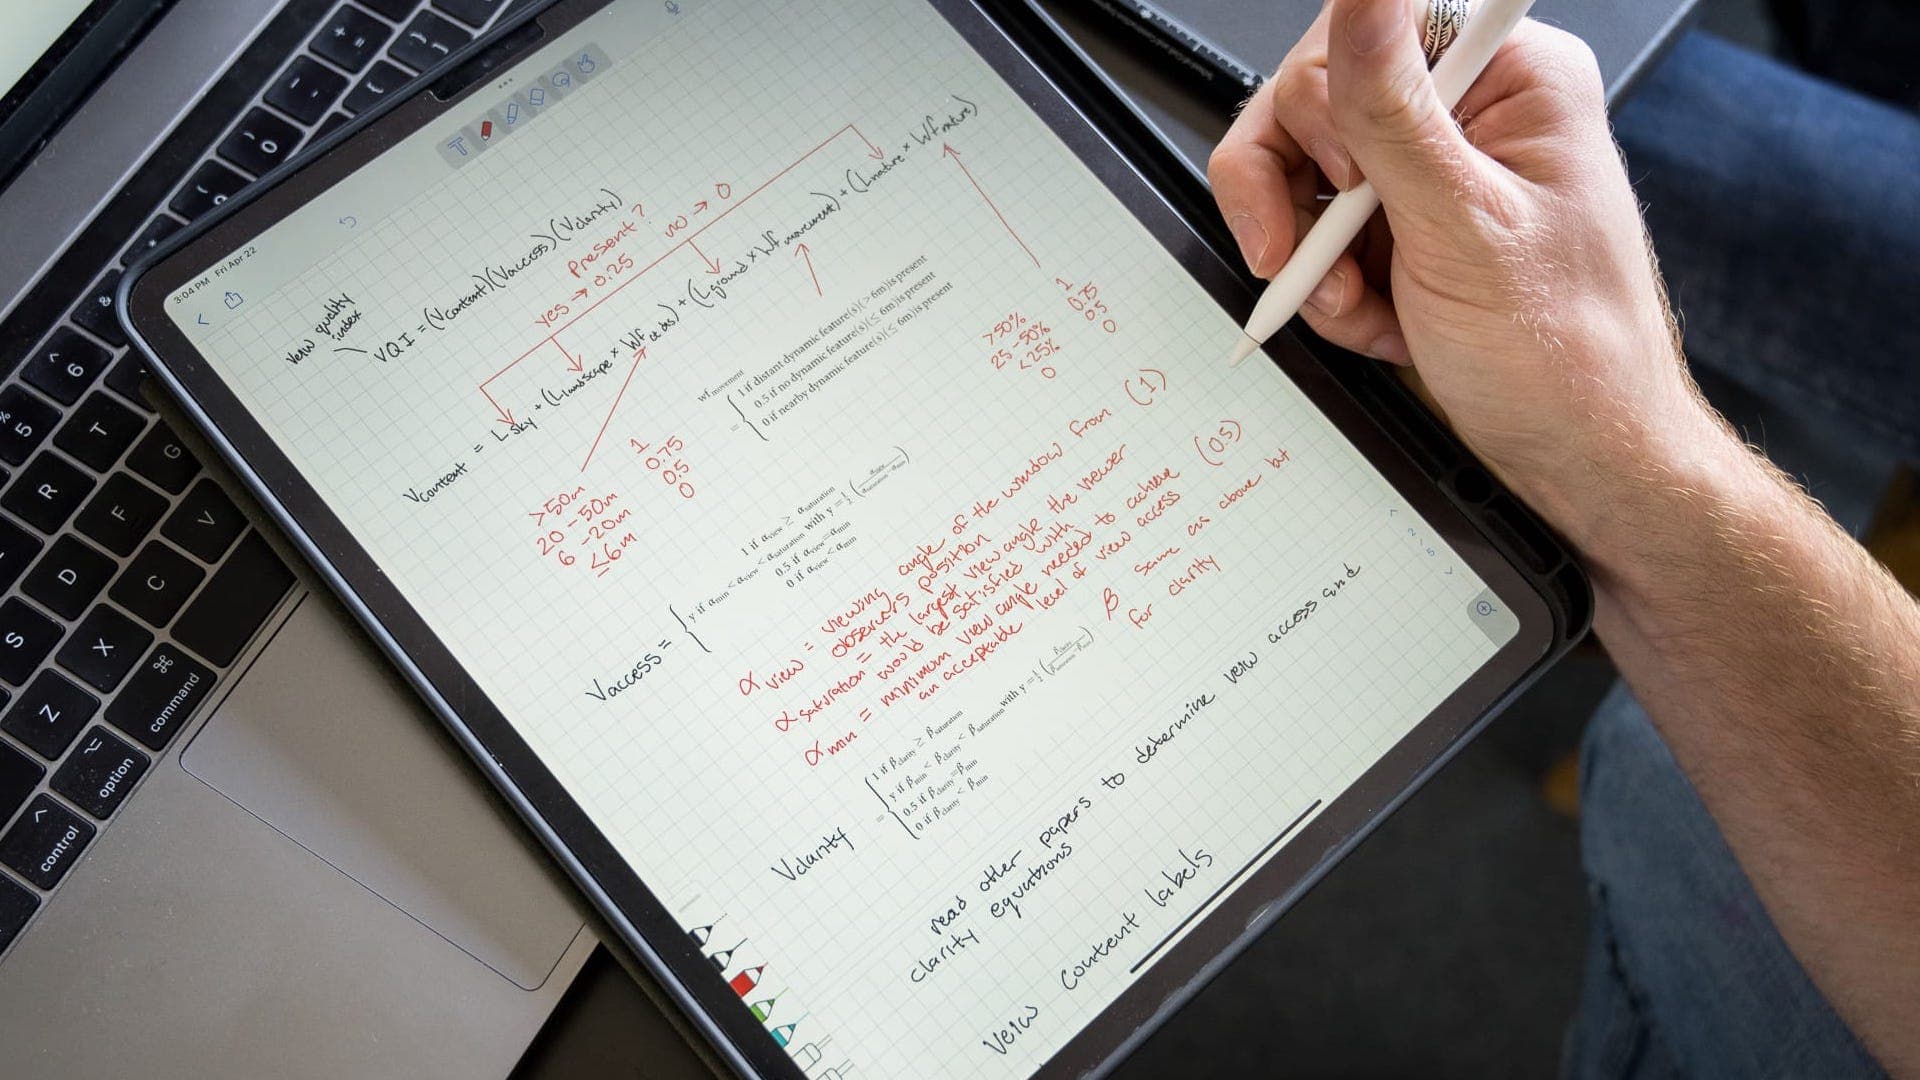 3:04 PM Fri Apr 22
verw quality
index
VQI = (Vcontent)(Vaccess)(Vclarity)
Present?
yes → 0.25 no → 0
Vcontent = Lsky + (Llandscape × Wf dis) + (Lground × Wf movement) + (Lnature × Wf nature)
>50m 1
20-50m 0.75
6-20m 0.5
≤6m 0
wf movement
= { 1 if distant dynamic feature(s)(>6m)is present
0.5 if no dynamic feature(s)(≤ 6m)is present
0 if nearby dynamic feature(s)(≤ 6m)is present
>50% 1
25-50% 0.75
<25% 0.5
0 0
Vaccess = {
1 if αview ≥ αsaturation
y if αmin < αview < αsaturation with y = 1/2 (αview / αsaturation - αmin)
0.5 if αview=αmin
0 if αview < αmin
α view = viewing angle of the window from (1)
observers position
α saturation = the largest view angle the viewer
would be satisfied with
α min = minimum view angle needed to achieve (0.5)
an acceptable level of view access
β same as above but
for clarity
Vclarity = {
1 if βclarity ≥ βsaturation
y if βmin < βclarity < βsaturation with y = 1/2 (βclarity / βsaturation-βmin)
0.5 if βclarity=βmin
0 if βclarity < βmin
read other papers to determine verw access and
clarity equations
Verw content labels
2 / 5
control
option
command
⌘
Z
X
C
V
S
D
F
G
R
T
5
%
6
^
&